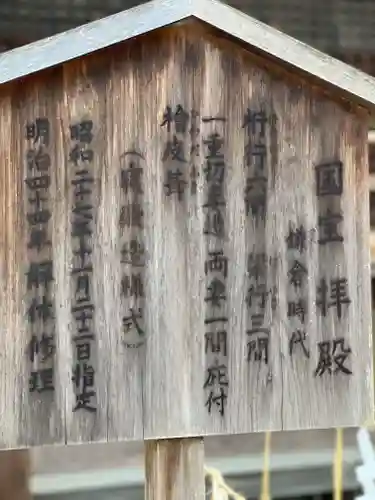 国宝 拝殿
鎌倉時代
桁行六間 梁行三間
一重切妻造 両妻一間庇付
檜皮葺
(寝殿造様式)
昭和二十七年十一月二十二日指定
明治四十四年解体修理